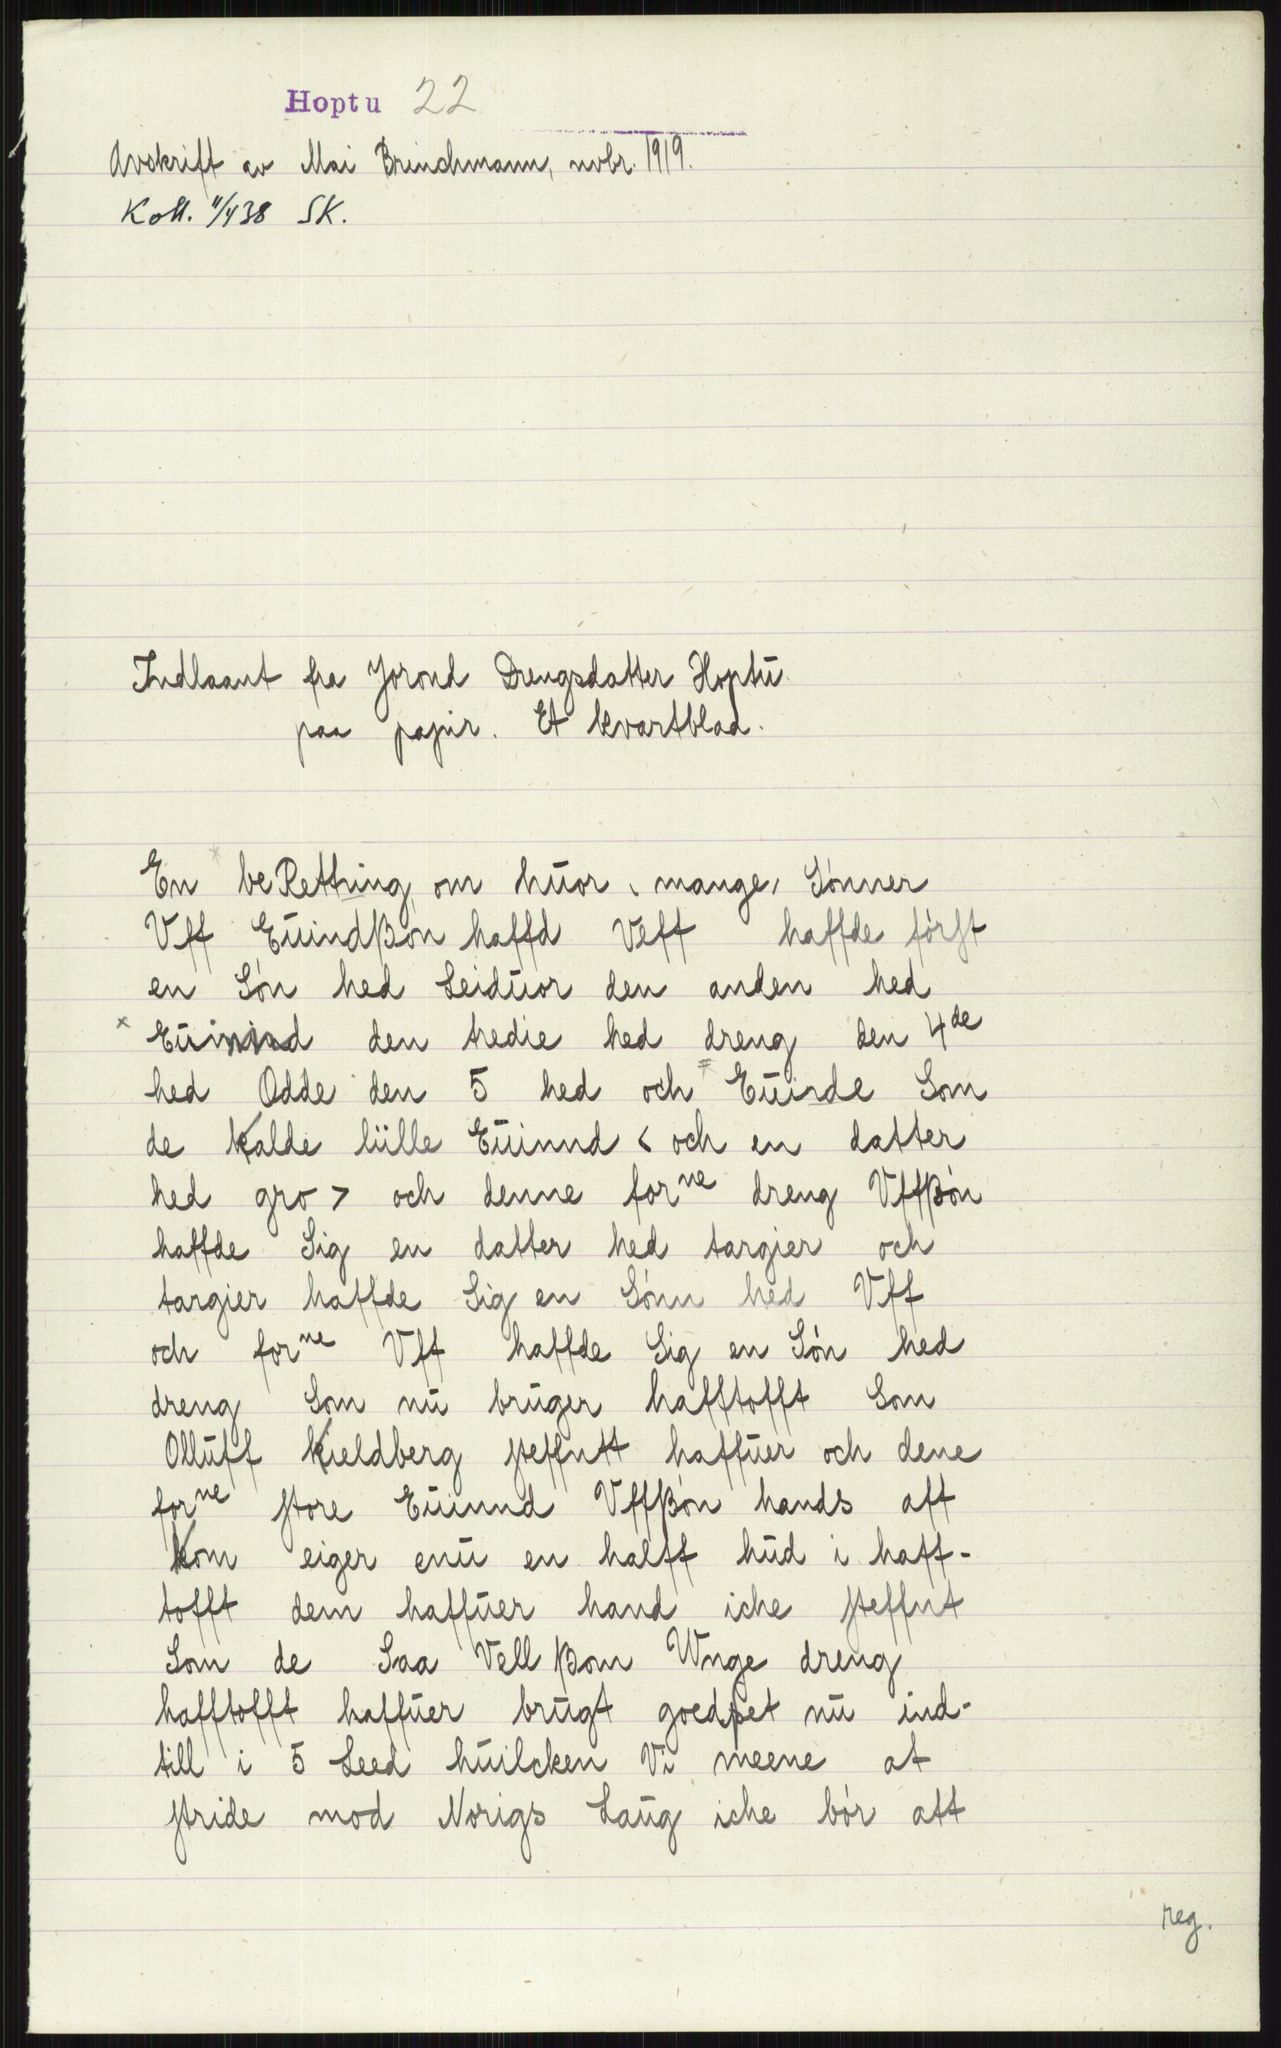 Hoptu 22
Avskrift av Mai Brinchmann, novbr. 1919.
Koll. 11/4 38 SK.
Indlaant fra Jorond Drengsdatter Hoptu
paa papir. Et kvartblad.
En beRettning om huor mange, Sönner
Vff Euindßon haffd Veff haffde först
en Sön hed Leiduor den anden hed
Euinnd den tredie hed dreng den 4de
hed Odde den 5 hed och Euinde Som
de kalde lülle Euinnd < och en datter
hed gro > och denne forne dreng Vffßön
haffde Sig en datter hed targier och
targier haffde Sig en Sönn hed Vff
och forne Vff haffde Sig en Sön hed
dreng Som nu bruger hafftofft Som
Olluff Kieldberg steffntt haffuer och dene
forne store Euinnd Vffßön hands aff
kom eiger enu en halff hud i haff-
tofft dem haffuer hand iche steffnt
Som de Saa Vell ßom Wnge dreng
hafftofft haffuer brugt goedset nu ind-
till i 5 Leed huilcken Vi meene at
stride mod Norigs Laug iche bör att
reg.